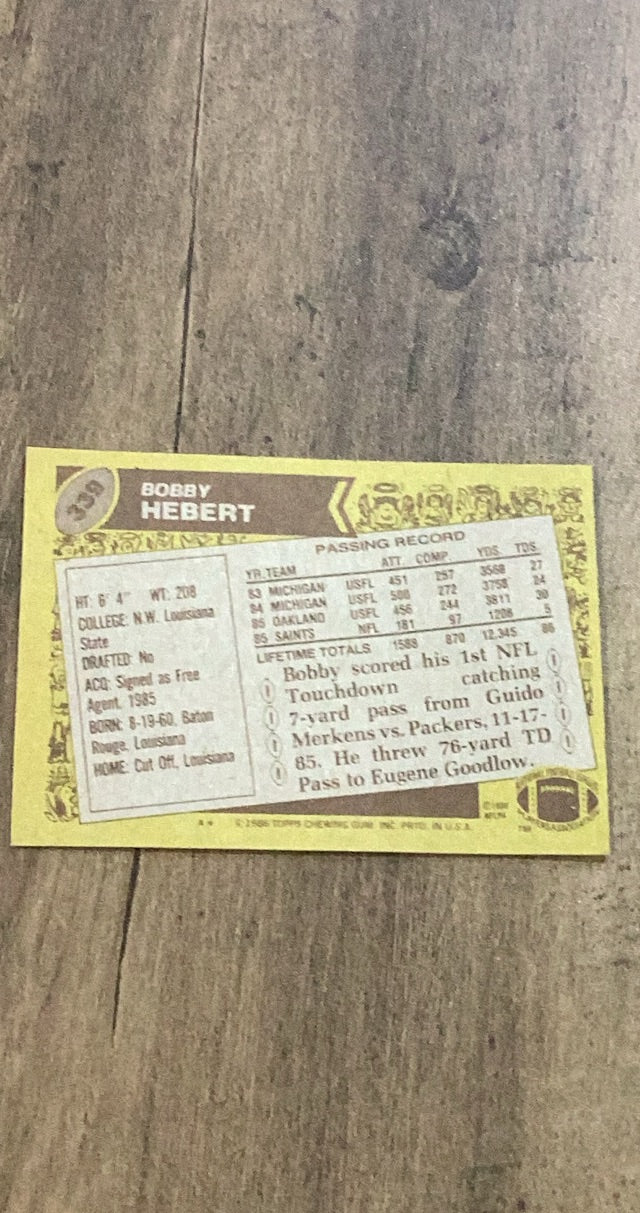 339
BOBBY
HEBERT
HT: 6' 4" WT: 208
COLLEGE: N.W. Louisiana
State
DRAFTED: No
ACQ: Signed as Free
Agent, 1985
BORN: 8-19-60, Baton
Rouge, Louisiana
HOME: Cut Off, Louisiana
PASSING RECORD
YR. TEAM ATT. COMP. YDS. TDS.
83 MICHIGAN USFL 451 257 3568 27
84 MICHIGAN USFL 500 272 3758 24
85 OAKLAND USFL 456 244 3811 30
85 SAINTS NFL 181 97 1208 5
LIFETIME TOTALS 1588 870 12,345 86
Bobby scored his 1st NFL
Touchdown catching
7-yard pass from Guido
Merkens vs. Packers, 11-17-
85. He threw 76-yard TD
Pass to Eugene Goodlow.
A* © 1986 TOPPS CHEWING GUM, INC. PRTD. IN U.S.A.
© 1986
NFLPA
TM